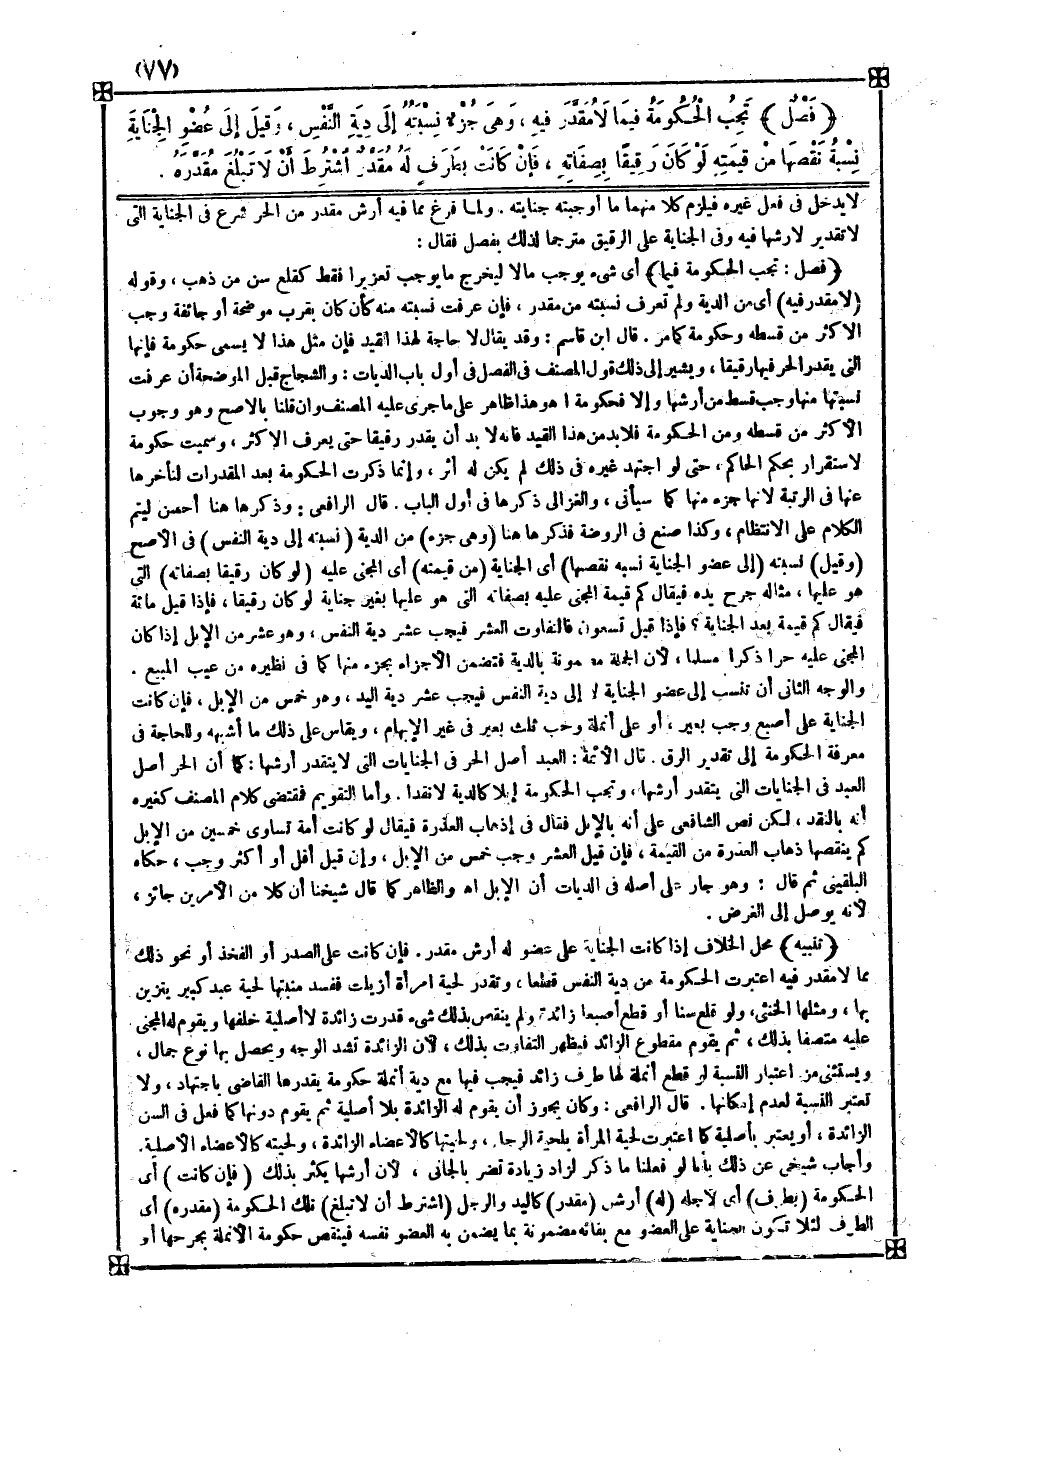 (٧٧)
﴿ فَصْلٌ ﴾ تَجِبُ الْحُكُومَةُ فِيمَا لَا مُقَدَّرَ فِيهِ ، وَهِيَ جُزْءٌ نِسْبَتُهُ إِلَى دِيَةِ النَّفْسِ ، وَقِيلَ إِلَى عُضْوِ الْجِنَايَةِ
نِسْبَةُ نَقْصِهَا مِنْ قِيمَتِهِ لَوْ كَانَ رَقِيقًا بِصِفَاتِهِ ، فَإِنْ كَانَتْ بِطَرَفٍ لَهُ مُقَدَّرٌ اشْتُرِطَ أَنْ لَا تَبْلُغَ مُقَدَّرَهُ .
لا يدخل فى فعل غيره فيلزم كلا منهما ما أوجبته جنايته . ولما فرغ مما فيه أرش مقدر من الحر شرع فى الجناية التى
لا تقدير لأرشها فيه وفى الجناية على الرقيق مترجما لذلك بفصل فقال :
﴿ فصل : تجب الحكومة فيما﴾ أى شىء يوجب مالا ليخرج ما يوجب تعزيرا فقط كقلع سن من ذهب ، وقوله
(لا مقدر فيه) أى من الدية ولم تعرف نسبته من مقدر ، فإن عرفت نسبته منه كأن كان بقرب موضحة أو جائفة وجب
الأكثر من قسطه وحكومة كما مر . قال ابن قاسم : وقد يقال لا حاجة لهذا القيد فإن مثل هذا لا يسمى حكومة فإنها
التى يقدر الحر فيها رقيقا ، ويشير إلى ذلك قول المصنف فى الفصل فى أول باب الديات : والشجاج قبل الموضحة أن عرفت
نسبتها منها وجب قسط من أرشها وإلا فحكومة ا هو هذا ظاهر على ما جرى عليه المصنف وان قلنا بالأصح وهو وجوب
الأكثر من قسطه ومن الحكومة فلابد من هذا القيد فانه لا بد أن يقدر رقيقا حتى يعرف الأكثر ، وسميت حكومة
لاستقرار بحكم الحاكم ، حتى لو اجتهد غيره فى ذلك لم يكن له أثر ، وإنما ذكرت الحكومة بعد المقدرات لتأخرها
عنها فى الرتبة لأنها جزء منها كما سيأتى ، والغزالى ذكرها فى أول الباب . قال الرافعى : وذكرها هنا أحسن ليتم
الكلام على الانتظام ، وكذا صنع فى الروضة فذكرها هنا (وهى جزء) من الدية (نسبته إلى دية النفس) فى الأصح
(وقيل) نسبته (إلى عضو الجناية نسبه نقصها) أى الجناية (من قيمته) أى المجنى عليه (لو كان رقيقا بصفاته) التى
هو عليها ، مثاله جرح يده فيقال كم قيمة المجنى عليه بصفاته التى هو عليها بغير جناية لو كان رقيقا ، فإذا قيل مائة
فيقال كم قيمة بعد الجناية ؟ فإذا قيل تسعون فالتفاوت العشر فيجب عشر دية النفس ، وهو عشر من الإبل إذا كان
المجنى عليه حرا ذكرا مسلما ، لأن الجملة مضمونة بالدية فتضمن الأجزاء بجزء منها كما فى نظيره من عيب المبيع .
والوجه الثانى أن تنسب إلى عضو الجناية لا إلى دية النفس فيجب عشر دية اليد ، وهو خمس من الإبل ، فإن كانت
الجناية على أصبع وجب بعير ، أو على أنملة وجب ثلث بعير فى غير الإبهام ، ويقاس على ذلك ما أشبهه وللحاجة فى
معرفة الحكومة إلى تقدير الرق . قال الأئمة : العبد أصل الحر فى الجنايات التى لا يتقدر أرشها : كما أن الحر أصل
العبد فى الجنايات التى يتقدر أرشها ، وتجب الحكومة إبلا كالدية لا نقدا . وأما التقويم فمقتضى كلام المصنف كغيره
أنه بالنقد ، لكن نص الشافعى على أنه بالإبل فقال فى إذهاب العذرة فيقال لو كانت أمة تساوى خمسين من الإبل
كم ينقصها ذهاب العذرة من القيمة ، فإن قيل العشر وجب خمس من الإبل ، وإن قيل أقل أو أكثر وجب ، حكاه
البلقينى ثم قال : وهو جار على أصله فى الديات أن الإبل اه والظاهر كما قال شيخنا أن كلا من الأمرين جائز ،
لأنه يوصل إلى الغرض .
﴿ تنبيه ﴾ محل الخلاف إذا كانت الجناية على عضو له أرش مقدر . فإن كانت على الصدر أو الفخذ أو نحو ذلك
مما لا مقدر فيه اعتبرت الحكومة من دية النفس قطعا ، وتقدر لحية امرأة أزيلت ففسد منبتها لحية عبد كبير يتزين
بها ، ومثلها الخنثى ، ولو قلع سنا أو قطع أصبعا زائدة ولم ينقص بذلك شىء قدرت زائدة لا أصلية خلفها ويقوم له المجنى
عليه متصفا بذلك ، ثم يقوم مقطوع الزائد فيظهر التفاوت بذلك ، لأن الزائدة تشد الوجه ويحصل بها نوع جمال ،
ويستثنى من اعتبار النسبة لو قطع أنملة لها طرف زائد فيجب فيها مع دية أنملة حكومة يقدرها القاضى باجتهاد ، ولا
تعتبر النسبة لعدم إمكانها . قال الرافعى : وكان يجوز أن يقوم له الزائدة بلا أصلية ثم يقوم دونها كما فعل فى السن
الزائدة ، أو يعتبر بأصلية كما اعتبرت لحية المرأة بلحية الرجل ، ولحيتها كالأعضاء الزائدة ، ولحيته كالأعضاء الأصلية.
وأجاب شيخى عن ذلك بأنا لو فعلنا ما ذكر لزاد زيادة تضر بالجانى ، لأن أرشها يكثر بذلك (فإن كانت) أى
الحكومة (بطرف) أى لأجله (له) أرش (مقدر) كاليد والرجل (اشترط أن لا تبلغ) تلك الحكومة (مقدره) أى
الطرف لئلا تكون الجناية على العضو مع بقائه مضمونة بما يضمن به العضو نفسه فينقص حكومة الأنملة بجرحها أو